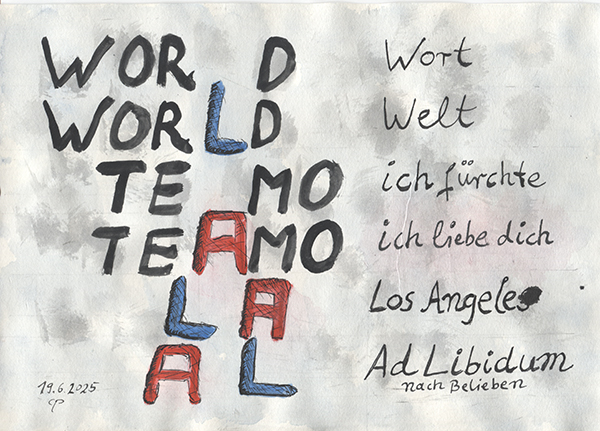 WOR D Wort
WORLD Welt
TE MO ich fürchte
TEAMO ich liebe dich
L A Los Angeles
A L Ad Libidum
nach Belieben
19.6.2025